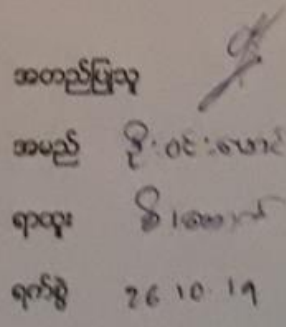 အတည်ပြုသူ
အမည် စိုးဝင်းမောင်
ရာထူး
ရက်စွဲ 26 10 19